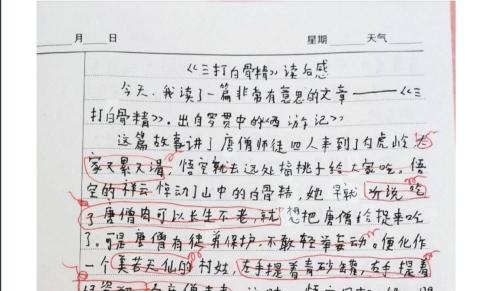 月 日 星期 天气
《三打白骨精》读后感
今天，我读了一篇非常有意思的文章——《三
打白骨精》。出自罗贯中的《西游记》
这篇故事讲了唐僧师徒四人来到了白虎岭 大
家又累又渴，悟空就去远处摘桃子给大家吃。悟
空的祥云惊动了山中的白骨精，她早就听说吃
了唐僧肉可以长生不老，就想把唐僧给捉来吃
了。可是唐僧有徒弟保护，不敢轻举妄动。便化作
一个美若天仙的村姑，左手提着青砂罐，右手提着